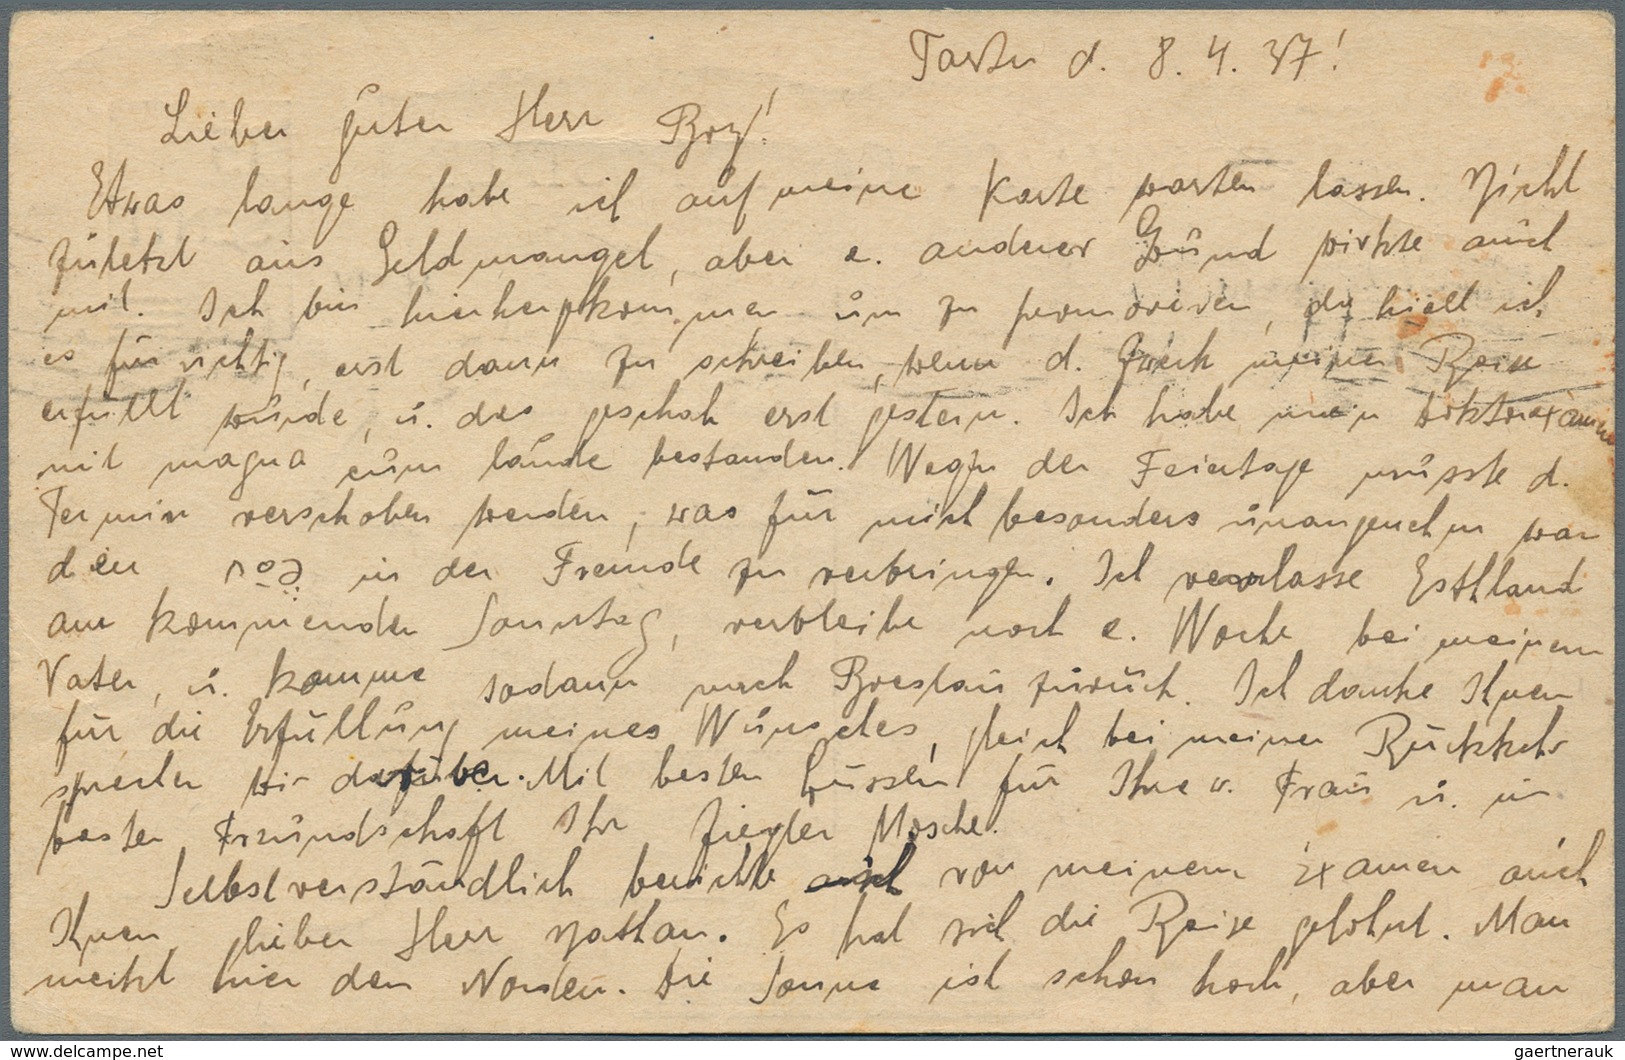 Tartu d. 8. 4. 37!
Lieber guter Herr
Etwas lange habe ich auf meine Karte warten lassen. Nicht
zuletzt aus Geldmangel, aber e. anderer Grund wirkte auch
mit. Ich bin hierhergekommen um zu promovieren, da hielt ich
es für richtig, erst dann zu schreiben, wenn d. Zweck meiner Reise
erfüllt würde, u. das geschah erst gestern. Ich habe mein Doktorexamen
mit magna cum laude bestanden. Wegen der Feiertage musste d.
Termin verschoben werden, was für mich besonders unangenehm war
den פסח in der Fremde zu verbringen. Ich verlasse Esthland
am kommenden Sonntag, verbleibe noch e. Woche bei meinem
Vater, u. komme sodann nach Breslau zurück. Ich danke Ihnen
für die Erfüllung meines Wunsches, gleich bei meiner Rückkehr
sprechen wir darüber. Mit besten Grüssen für Ihre v. Frau u. in
bester Freundschaft Ihr Ziegler Mosche.
Selbstverständlich berichte auch von meinem Examen auch
Ihnen lieber Herr Nathan. Es hat sich die Reise gelohnt. Man
merkt hier den Norden. Die Sonne ist schon hoch, aber man
www.delcampe.net
gaertnerauk